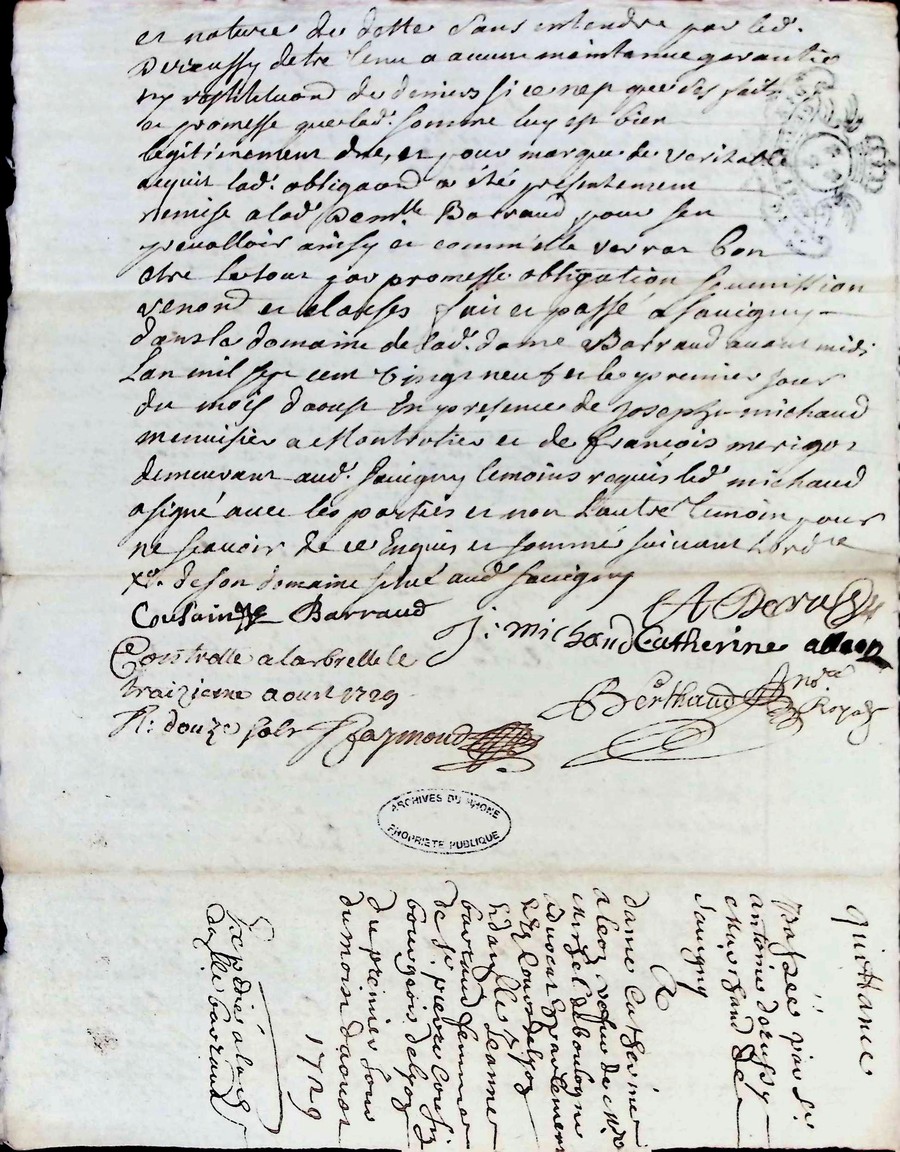 et nature de dette sans entendre par led.
Deroussy detre tenu a aucune maintenue garantie
ny restitution de deniers si ce nest que des faits
et promesse que lad. somme luy est bien
legitimement due, et pour marque de veritable
acquit lad. obligaond a été presentement
remise a lad. Demlle Barraud pour sen
prevalloir ainsy et comm'elle verrat bon
etre le tout par promesse obligation soumission
renond et clauses fait et passé a Savigny
dans la domaine de lad. dame Barraud avant midi
Lan mil sept cent vingt neuf et le premier jour
du mois daoust En presence de Joseph michaud
menuisier a Montrotier et de françois merigot
demeurant aud. Savigny temoins requis led. michaud
a signé avec les parties et non l'autre temoin pour
ne scavoir de ce Enquis et sommé suivant lordre
xo. de son domaine situé aud. Savigny
Cousain Barraud
A Deroussy
J. Michaud Catherine alleon
Controllé a larbrelle le
traizieme aoust 1729
R. douze sols Raymond
Berthaud nore Royal
ARCHIVES DU RHONE
PROPRIETE PUBLIQUE
quittance
passée par Sr
antoine deroussy
Marchand de
Savigny
A
dame Catherine
aleon veufve de Mr
Mr de boulogne
advocat En parlement
Et Es cours de lyon
Et dauelle Jeanne
barraud femme
de Sr pierre Cousin
bourgeois de lyon
du premier jour
du mois daoust
1729
Expedié a lad.
dauelle barraud